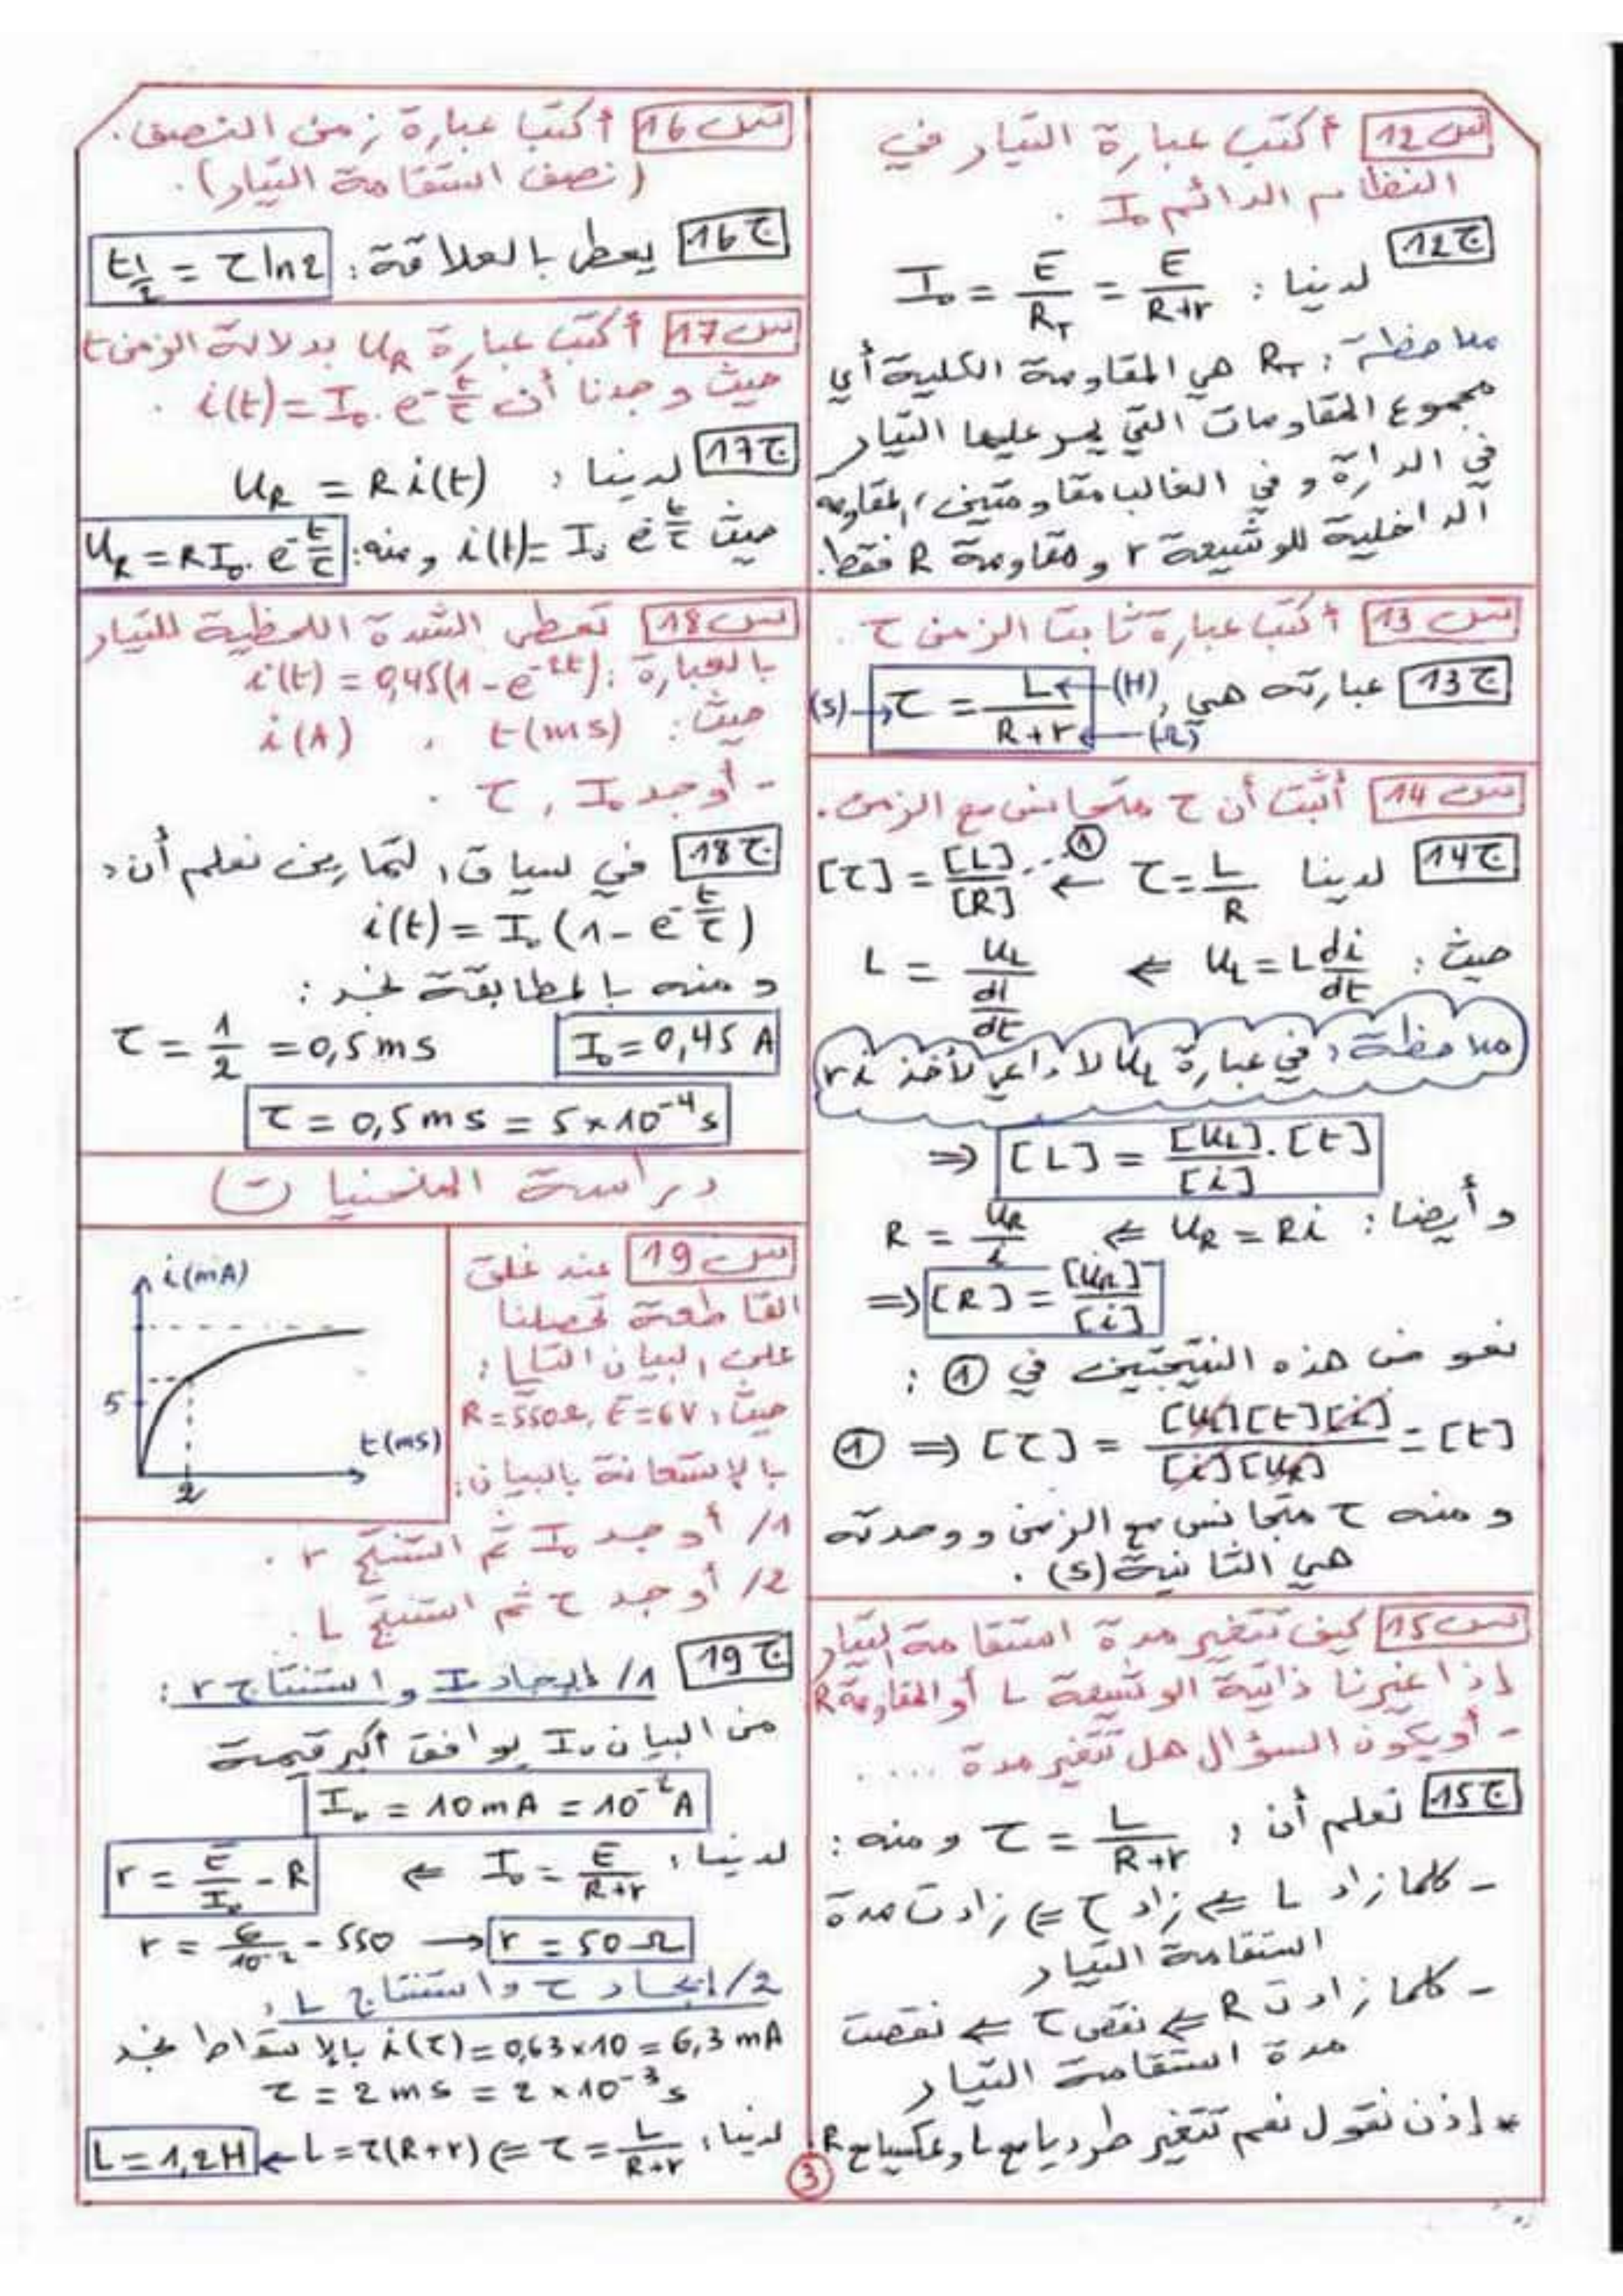 س12 أكتب عبارة التيار في
النظام الدائم I₀ .
ج12 لدينا : I₀ = E/R_T = E/(R+r)
ملاحظة : R_T هي المقاومة الكلية أي
مجموع المقاومات التي يمر عليها التيار
في الدارة و في الغالب مقاومتين المقاومة
الداخلية للوشيعة r و مقاومة R فقط.
س13 أكتب عبارة ثابت الزمن τ .
ج13 عبارته هي , (s) → τ = L/(R+r) ← (H) ← (Ω)
س14 أثبت أن τ متجانس مع الزمن .
ج14 لدينا τ = L/R ⇐ [τ] = [L]/[R] ... ①
حيث : u_L = L di/dt ⇐ L = u_L/(dI/dt)
ملاحظة : في عبارة u_L لا داعي لأخذ ri
⇒ [L] = [u_L]/[i] . [t]
و أيضا : u_R = Ri ⇐ R = u_R/i
⇒ [R] = [u_R]/[i]
نعوض هذه النتيجتين في ① :
① ⇒ [τ] = [u][t][i]/[i][u_R] = [t]
و منه τ متجانس مع الزمن و وحدته
هي الثانية (s) .
س15 كيف تتغير مدة استقامة التيار
إذا غيرنا ذاتية الوشيعة L أو المقاومة R
- أو يكون السؤال هل تتغير مدة .....
ج15 نعلم أن : τ = L/(R+r) و منه :
- كلما زاد L ⇐ زاد τ ⇐ زادت مدة
استقامة التيار
- كلما زادت R ⇐ نقص τ ⇐ نقصت
مدة استقامة التيار
* إذن نقول نعم تتغير طرديا مع L وعكسيا مع R
س16 أكتب عبارة زمن النصف .
(نصف استقامة التيار) .
ج16 يعطى بالعلاقة : t½ = τ ln2
س17 أكتب عبارة u_R بدلالة الزمن t
حيث وجدنا أن i(t) = I₀ . e^(-t/τ) .
ج17 لدينا : u_R = R i(t)
حيث i(t) = I₀ e^(-t/τ) و منه : u_R = RI₀ . e^(-t/τ)
س18 تعطى الشدة اللحظية للتيار
بالعبارة : i(t) = 0,45(1 - e^(-2t))
حيث : t(ms) , i(A)
- أوجد I₀ , τ .
ج18 في سياق التمارين نعلم أن :
i(t) = I₀ (1 - e^(-t/τ))
و منه بالمطابقة نجد :
I₀ = 0,45 A τ = 1/2 = 0,5 ms
τ = 0,5 ms = 5×10⁻⁴ s
دراسة المنحنيات
س19 عند غلق
القاطعة تحصلنا
على البيان التالي :
حيث : R = 550Ω , E = 6V
بالإستعانة بالبيان :
i(mA)
5
t(ms)
2
1/ أوجد I₀ ثم استنتج r .
2/ أوجد τ ثم استنتج L .
ج19 1/ إيجاد I₀ و استنتاج r :
من البيان I₀ يوافق أكبر قيمة
I₀ = 10 mA = 10⁻² A
لدينا : I₀ = E/(R+r) ⇐ r = E/I₀ - R
r = 6/10⁻² - 550 → r = 50 Ω
2/ إيجاد τ و استنتاج L :
i(τ) = 0,63×10 = 6,3 mA بالإسقاط نجد
τ = 2 ms = 2×10⁻³ s
لدينا : τ = L/(R+r) ⇐ L = τ(R+r) ← L = 1,2H
3